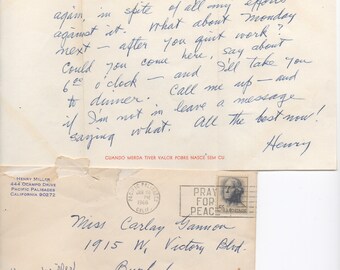 again, in spite of all my efforts
against it. What about Monday
next — after you quit work?
Could you come here, say about
6:00 o'clock — and I'll take you
to dinner. Call me up — and
if I'm not in leave a message
saying what. All the best now!
Henry
HENRY MILLER
444 OCAMPO DRIVE
PACIFIC PALISADES
CALIFORNIA 90272
PRAY
FOR
PEACE
Miss Carlay Gannon
1915 W. Victory Blvd.